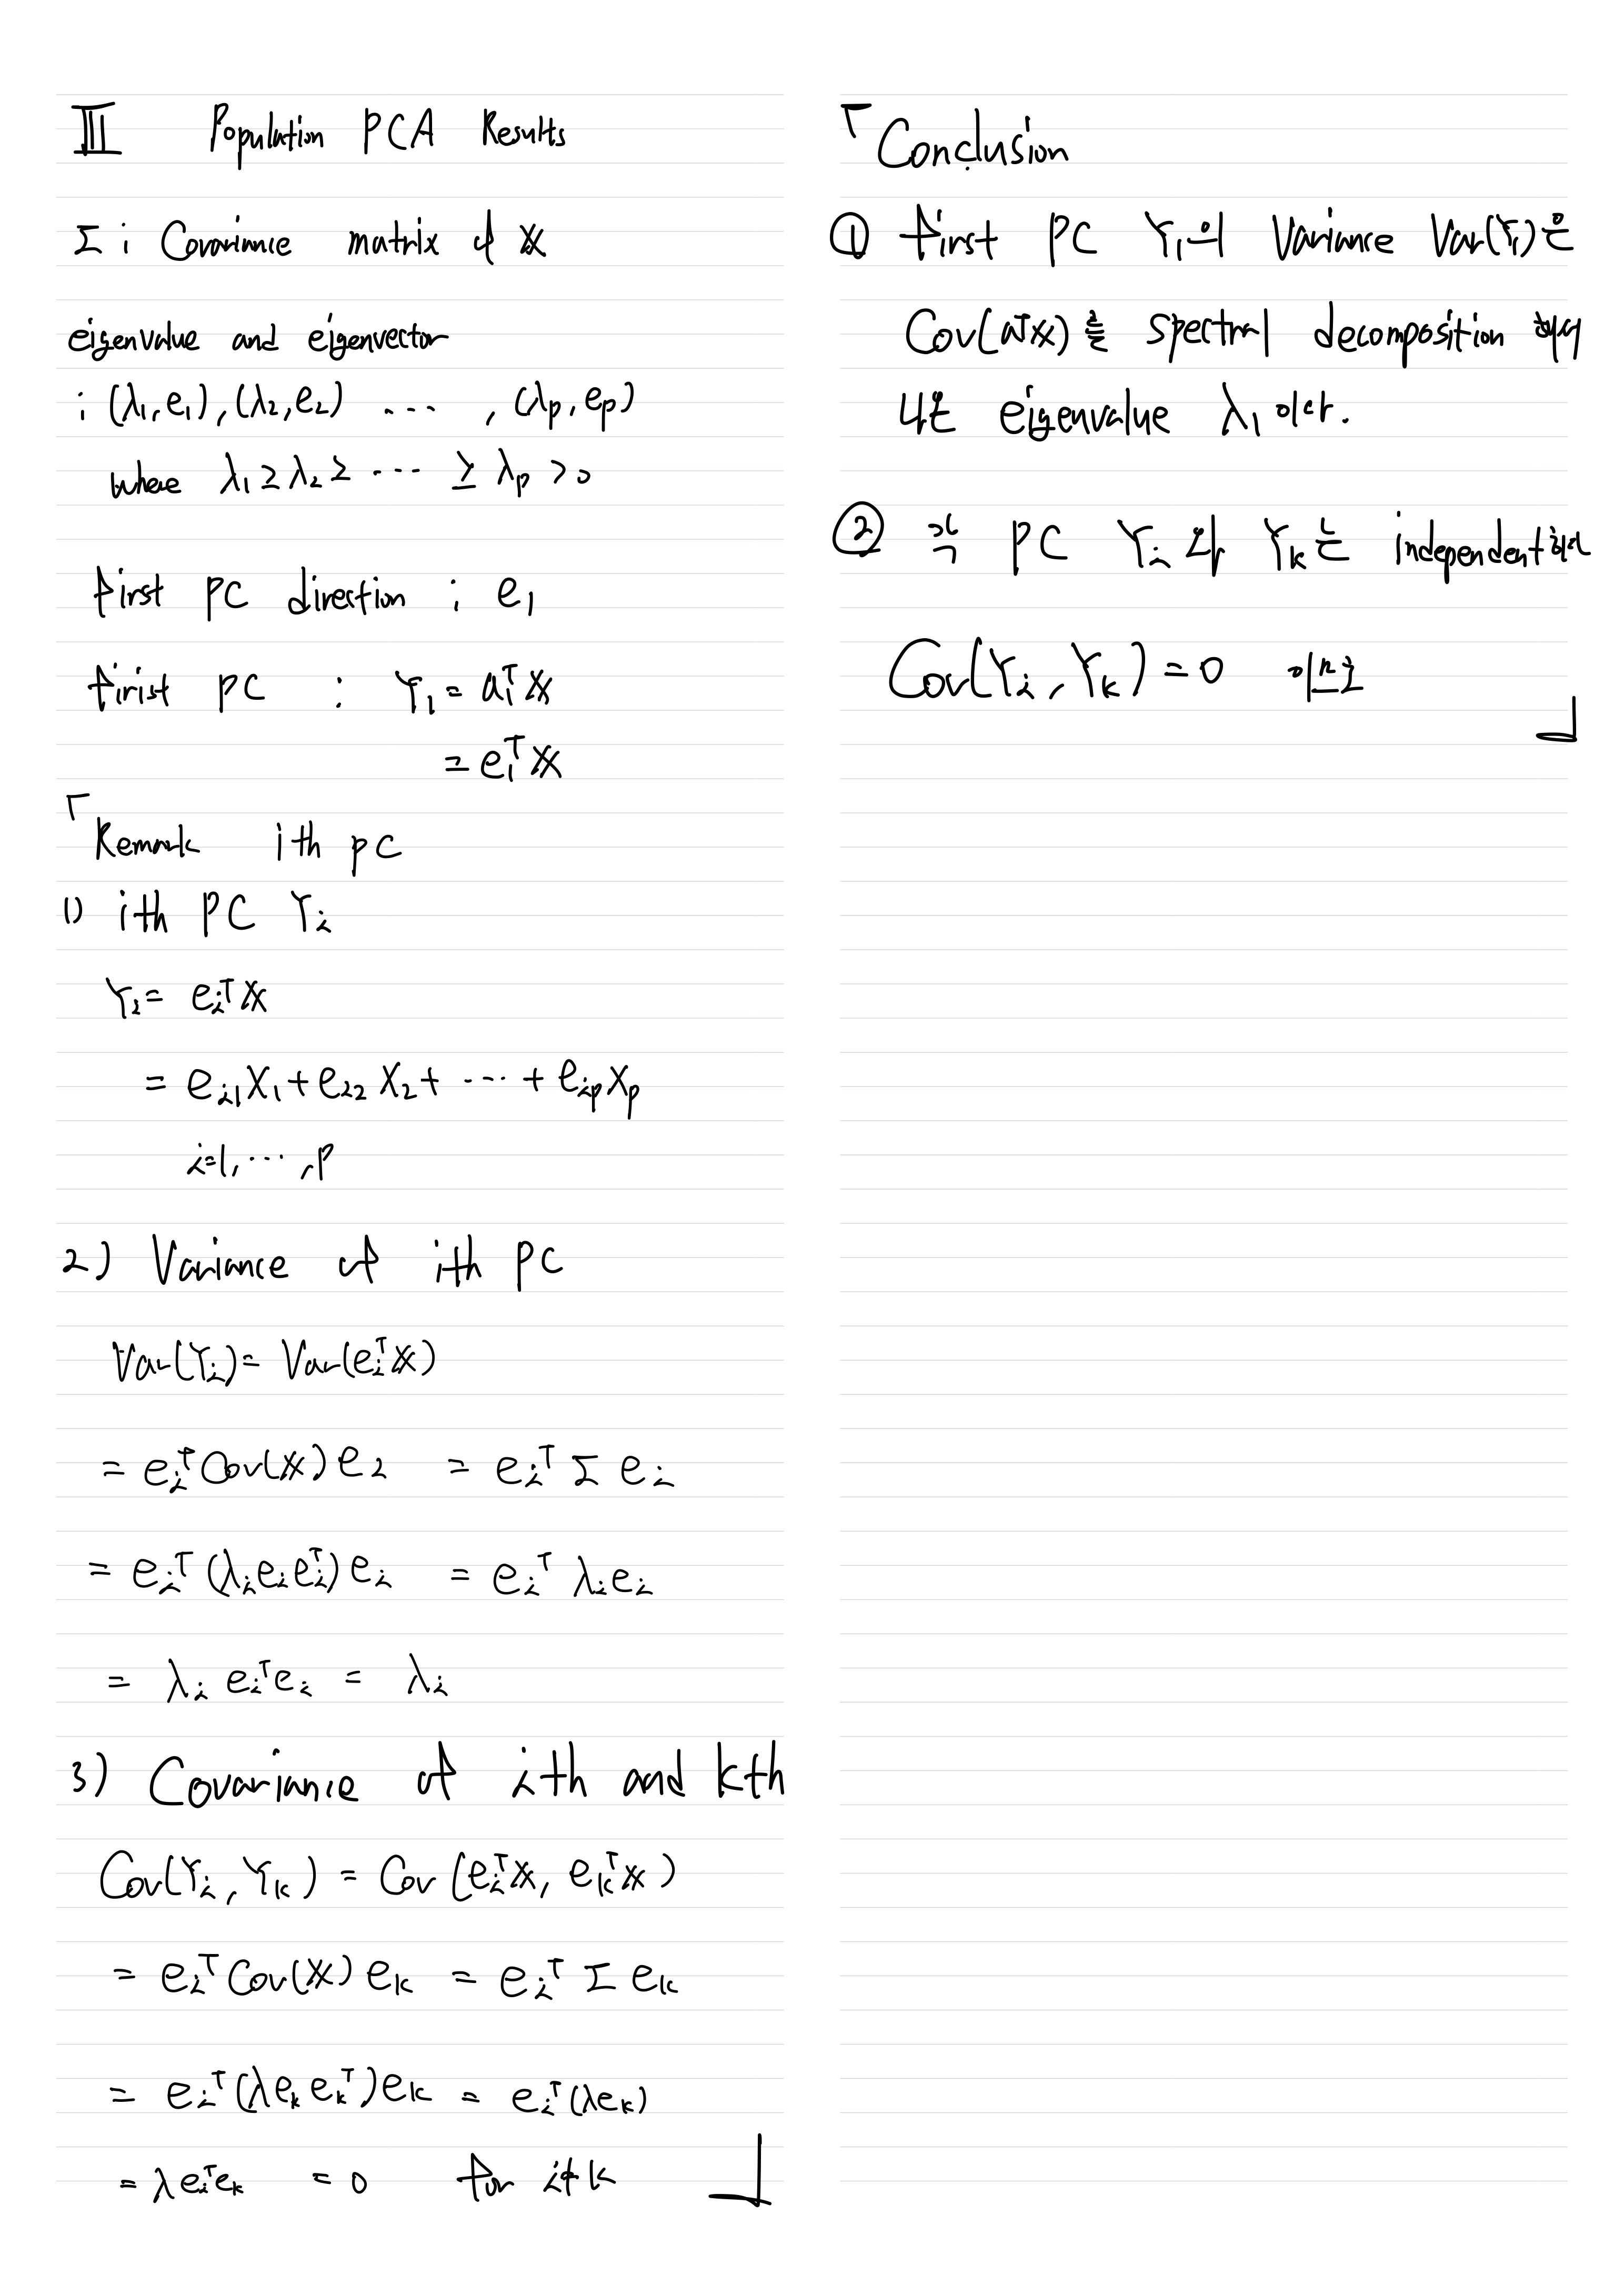 III Population PCA Results
Σ : Covariance matrix of X
eigenvalue and eigenvector
: (λ₁, e₁), (λ₂, e₂) ···· , (λp, ep)
where λ₁ ≥ λ₂ ≥ ···· ≥ λp > 0
first PC direction : e₁
firist PC : Y₁ = a₁ᵀX
= e₁ᵀX
「Remark ith PC
1) ith PC Yᵢ
Yᵢ = eᵢᵀX
= eᵢ₁X₁ + e₂₂X₂ + ···· + eᵢpXp
i=1, ··· , p
2) Variance of ith PC
Var(Yᵢ) = Var(eᵢᵀX)
= eᵢᵀCov(X)eᵢ = eᵢᵀ Σ eᵢ
= eᵢᵀ(λᵢeᵢeᵢᵀ)eᵢ = eᵢᵀ λᵢeᵢ
= λᵢ eᵢᵀeᵢ = λᵢ
3) Covariance of ith and kth
Cov(Yᵢ, Yₖ) = Cov(eᵢᵀX, eₖᵀX)
= eᵢᵀCov(X)eₖ = eᵢᵀ Σ eₖ
= eᵢᵀ(λeₖeₖᵀ)eₖ = eᵢᵀ(λeₖ)
= λeᵢᵀeₖ = 0 for i≠k 」
「Conclusion
① first PC Y₁의 Variance Var(Y₁)은
Cov(aᵀX)를 spectral decomposition
나온 eigenvalue λ₁이다.
② 각 PC Yᵢ와 Yₖ는 independent
Cov(Yᵢ, Yₖ) = 0
」